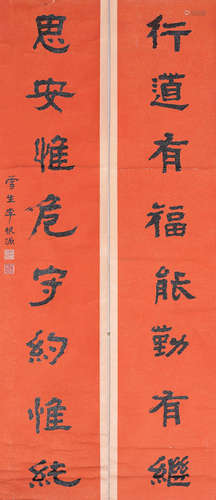 行道有福能勤有繼
思安惟危守約惟純
雪生李根源